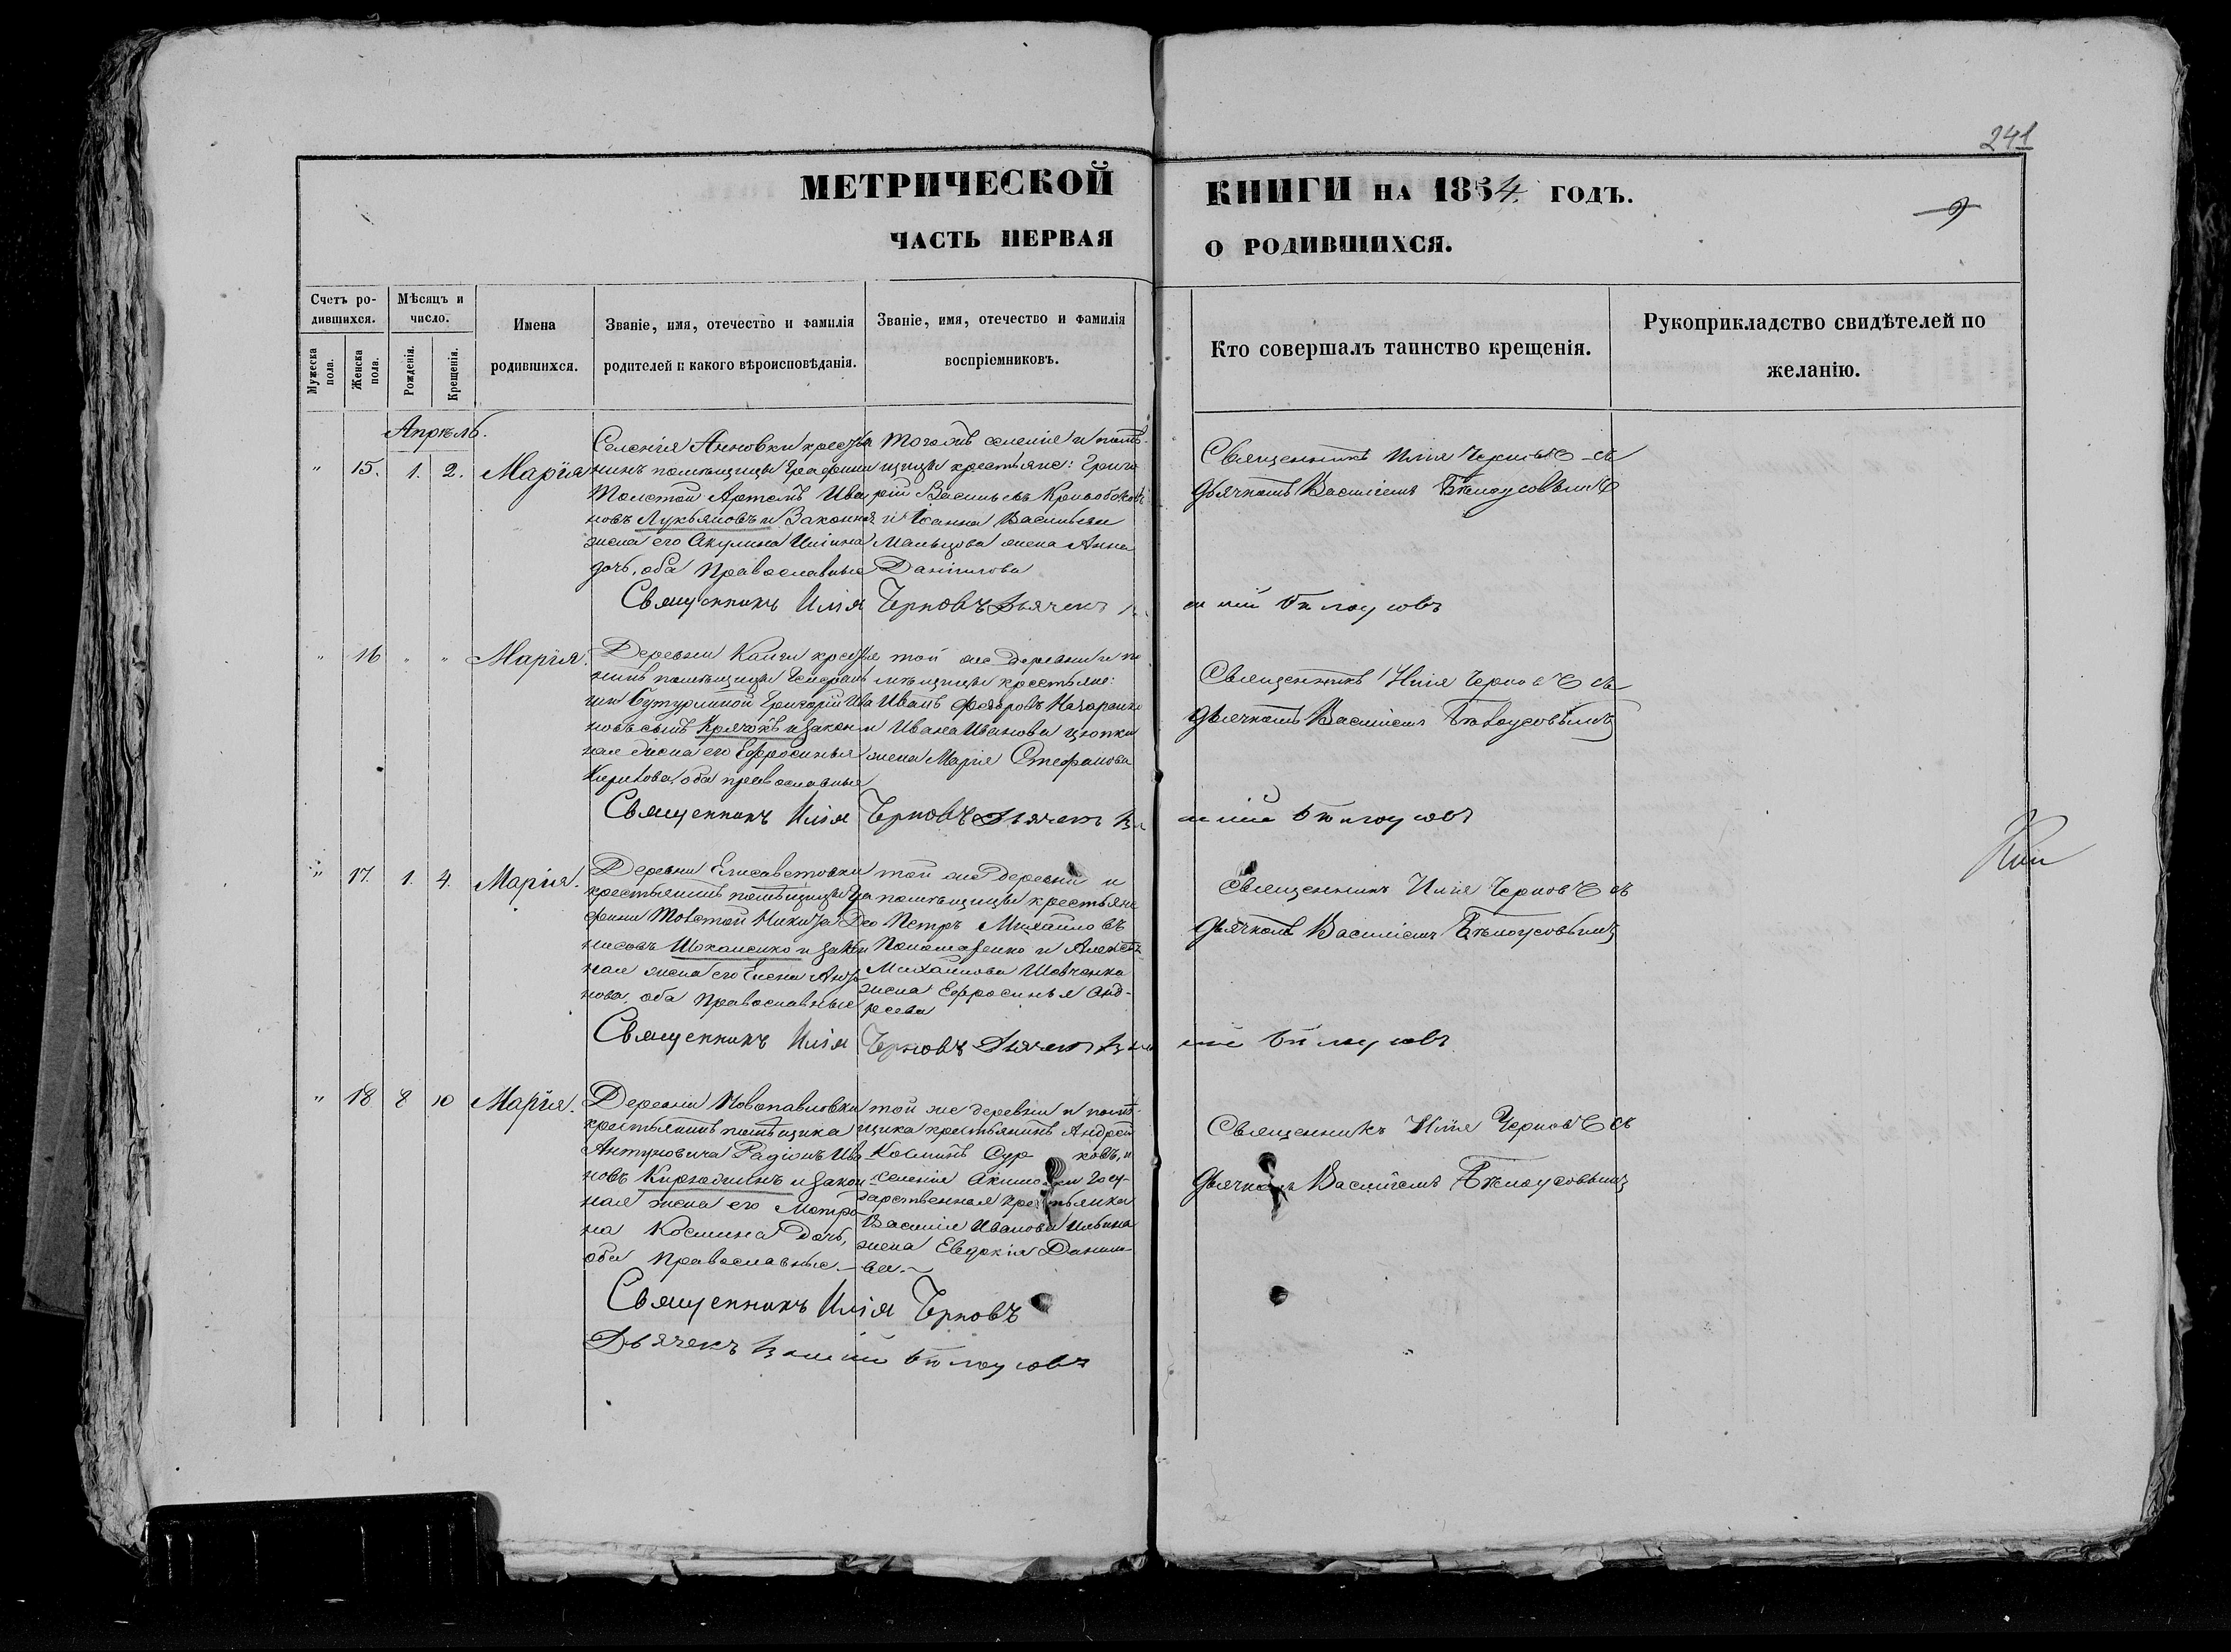 241
МЕТРИЧЕСКОЙ КНИГИ НА 1854 ГОДЪ.
9
ЧАСТЬ ПЕРВАЯ О РОДИВШИХСЯ.
Счетъ родившихся.
Мужеска пола.
Женска пола.
Мѣсяцъ и число.
Рожденія.
Крещенія.
Имена родившихся.
Званіе, имя, отечество и фамилія родителей и какого вѣроисповѣданія.
Званіе, имя, отечество и фамилія воспріемниковъ.
Кто совершалъ таинство крещенія.
Рукоприкладство свидѣтелей по желанію.
Апрѣль.
" 15. 1. 2. Марія
Селенія Анновки кресть
нинъ помѣщицы Графини
Толстой Артемъ Ива
новъ Лукьяновъ и Законная
жена его Акулина Ильина
дочь, оба Православные
Тогожъ селенія и помѣ-
щицы крестьяне: Григо
рій Васильевъ
и Іоанна Васильева
Мальцова жена Анна
Даніилова
Священникъ Илія Черновъ съ
дьячкомъ Василіемъ Бѣлоусовымъ
Священникъ Илія Черновъ Дьячекъ Василій Бѣлоусовъ
" 16 " " Марія.
Деревни крестья
нинъ помѣщицы
Бутурлиной Григорій Ива
новъ сынъ Крячокъ и закон
ная жена его Ефросинья
Кирилова, оба православные
той же деревни и по
мѣщицы крестьяне:
Иванъ Федоровъ Назаренко
и Ивана Иванова
жена Марія Стефанова
Священникъ Илія Черновъ съ
дьячкомъ Василіемъ Бѣлоусовымъ
Священникъ Илія Черновъ Дьячекъ Василій Бѣлоусовъ
" 17. 1. 4. Марія.
Деревни Елисаветовки
крестьянинъ помѣщицы Гра
фини Толстой Никита Де
нисовъ и закон
ная жена его Елена
нова, оба Православные
той же деревни и
помѣщицы крестьяне
Петръ Михайловъ
Пономаренко и Алексѣя
Михайлова Шевченка
жена Ефросинья Анд-
реева
Священникъ Илія Черновъ съ
дьячкомъ Василіемъ Бѣлоусовымъ
Священникъ Илія Черновъ Дьячекъ Василій Бѣлоусовъ
" 18 8 10 Марія.
Деревни Новопавловки
крестьянинъ помѣщика
Антуновича Радіонъ Ива
новъ и закон
ная жена его Матро
на Космина дочь,
оба Православные.
той же деревни и помѣ-
щика крестьянинъ Андрей
Косминъ и
селенія Акимовки Госу-
дарственная крестьянка
Василія Иванова Ильина
жена Евдокія Данило-
ва.
Священникъ Илія Черновъ съ
дьячкомъ Василіемъ Бѣлоусовымъ
Священникъ Илія Черновъ
Дьячекъ Василій Бѣлоусовъ